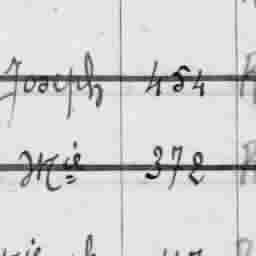 Joseph 454
Mie 372